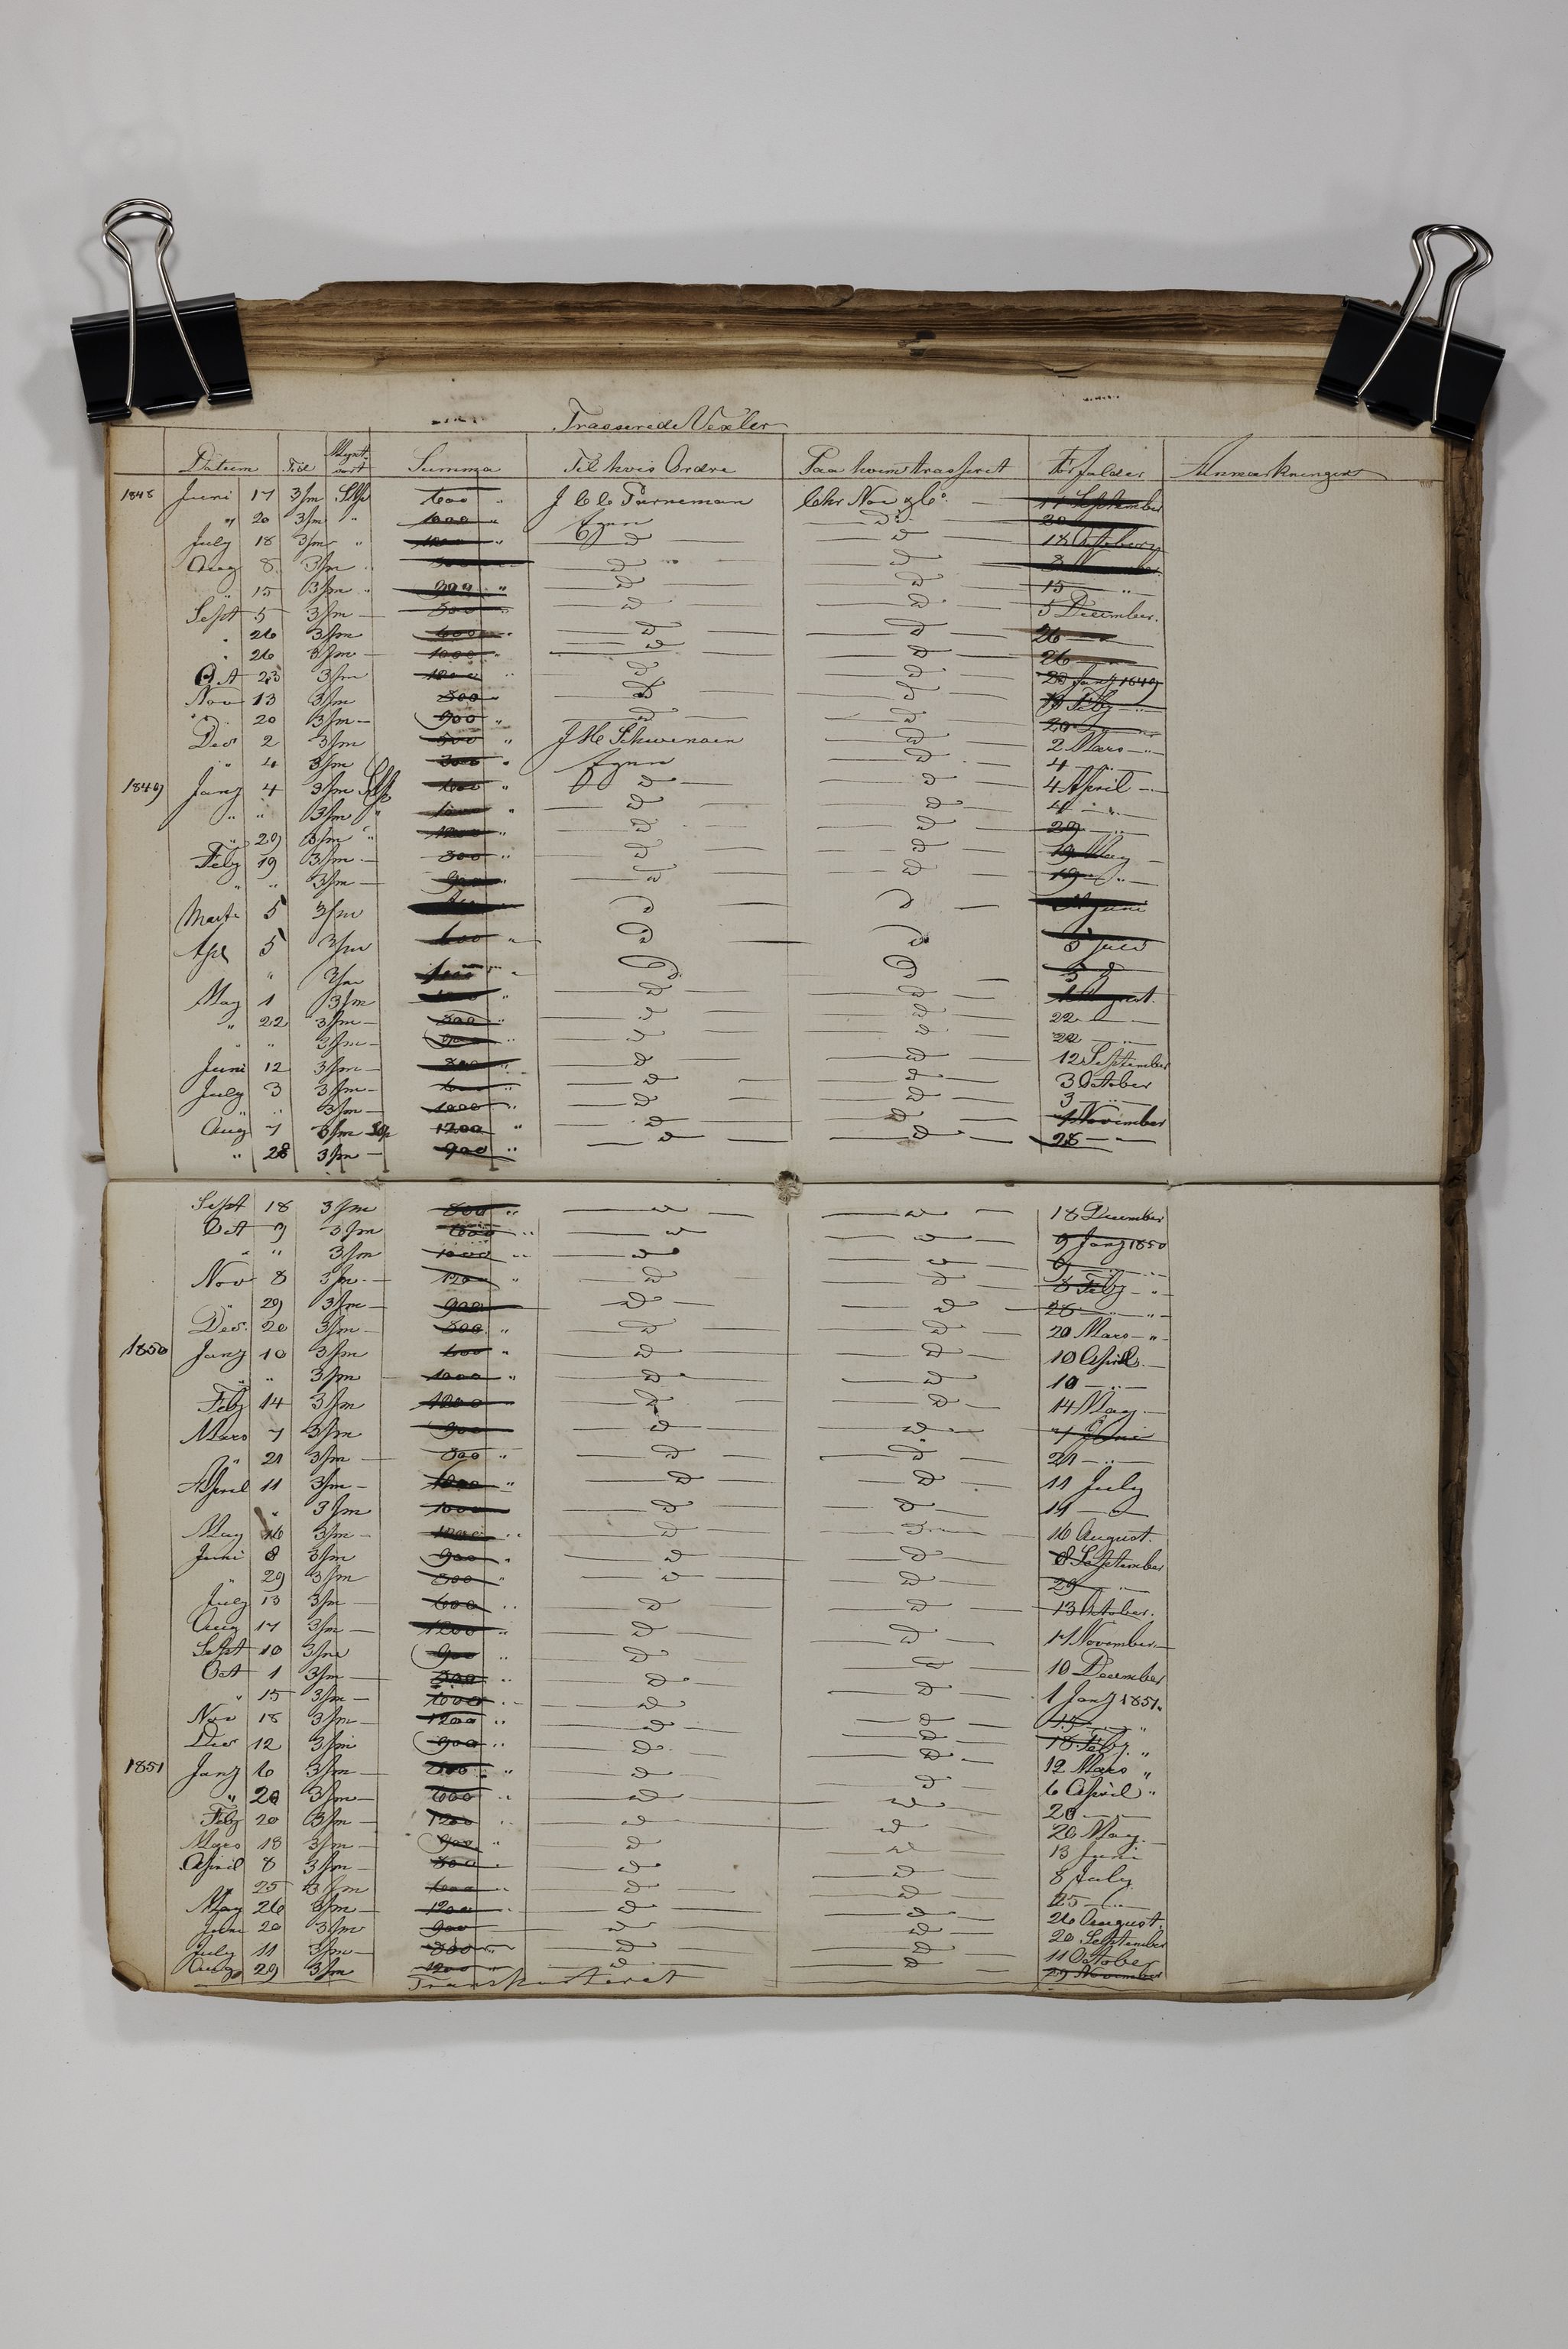 Trasserede Vexler
Datum Tid Mynt sort Summa Til hvis Ordre Paa hvem trasseret Forfalder Anmærkninger
1848 Juni 17 3/m 600 " J C C Chr Noe & Co 17 September
" 20 3/m " 1000 " Egen do 20
July 18 3/m " 1200 " d d 18 October
Aug 8 3/m d d 8
" 15 3/m " 900 " d d 15 "
Sept 5 3/m 800 d d 5 December
" 26 3/m 600 d d 26
" 26 3/m 1000 d d 26
Oct 23 3/m d d 23 Jany 1849
Nov 13 3/m 800 d d 13 Feby "
" 20 3/m 900 " d d 20
Decr 2 3/m 500 " J H d 2 Mars "
" 4 3/m 300 " Egen d 4 "
1849 Jany 4 3/m 600 " d d 4 April "
" " 3/m " 1000 " d d 4 "
" 29 3/m " 1200 " d d 29 "
Feby 19 3/m 800 " d d 19 May
" " 3/m 900 " d d 19 "
Marts 5 3/m d d Juni
Apl 5 3/m 600 " d d 5 Juli
" 3/m 1000 " d d 5 d
May 1 3/m 1200 " d d 1 August
" 22 3/m 800 " d d 22
" " 3/m 900 d d 22 "
Juni 12 3/m 800 " d d 12 September
July 3 3/m 600 " d d 3 October
" " 3/m 1000 " d d 3 "
Aug 7 3/m 1200 " d d 7 November
" 28 3/m 900 " d d 28 "
Sept 18 3/m 800 " d d 18 December
Oct 9 3/m 600 " d d 9 Jany 1850
" " 3/m 1000 " d d 9 "
Nov 8 3/m 1200 " d d 8 Feby "
" 29 3/m 900 d d 28 "
Decr. 20 3/m 800 " d d 20 Mars "
1850 Jany 10 3/m 600 " d d 10 April
" " 3/m 1000 " d d 10 "
Feby 14 3/m 1200 d d 14 May
Mars 7 3/m 900 d d 7 Juni
" 21 3/m 800 " d d 21 "
April 11 3/m 1000 " d d 11 July
" 3/m 1000 d d 11
May 16 3/m 1200 " d 16 August
Juni 8 3/m 900 " d d 8 September
" 29 3/m 800 " d d 29 "
July 13 3/m 600 " d d 13 October
Aug 17 3/m 1200 " d d 17 November
Sept 10 3/m 900 " d d 10 December
Oct 1 3/m 800 " d d 1 Jany 1851
" 15 3/m 1000 " d d 15 "
Nov 18 3/m 1200 " d d 18 Feby "
Decr 12 3/m 900 " d d 12 Mars "
1851 Jany 6 3/m 800 " d d 6 April "
" 20 3/m 600 " d d 20 "
Feby 20 3/m 1200 " d d 20 May
Mars 18 3/m 900 " d d 13 Juni
April 8 3/m 800 d d 8 July
" 25 3/m 1000 " d d 25 "
May 26 3/m 1200 " d d 26 August
Juni 20 3/m 900 d d 20 September
July 11 3/m 800 " d d 11 October
Aug 29 3/m 1200 " d d 29 November